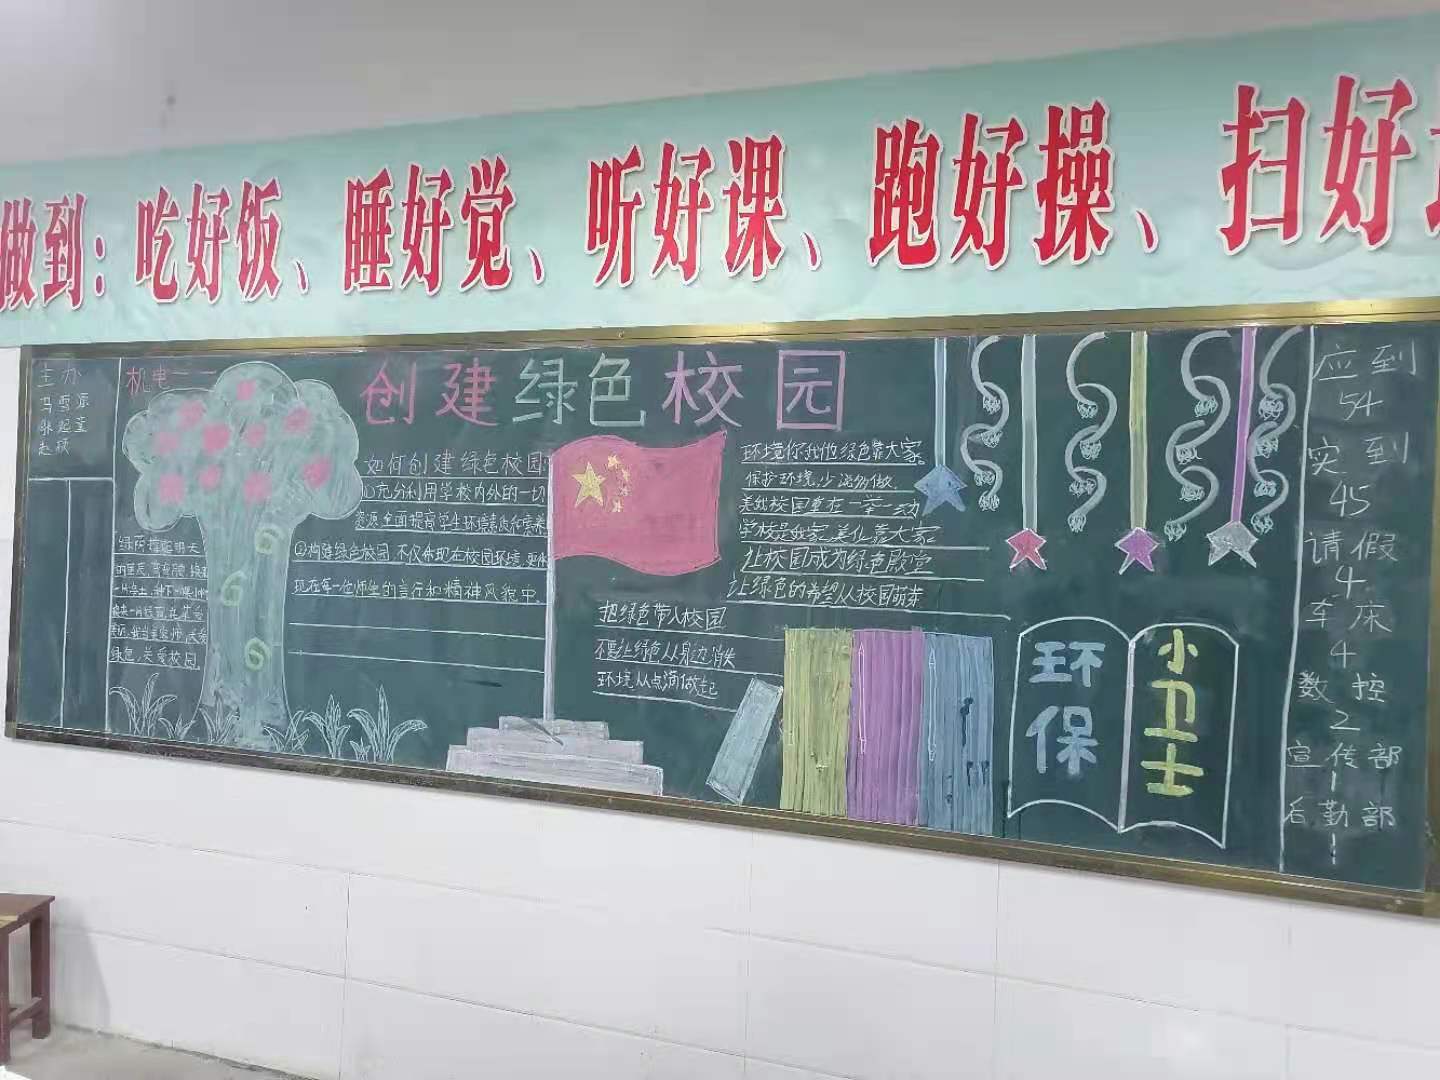 做到：吃好饭、睡好觉、听好课、跑好操、扫好
主办
冯雪源
赵硕
机电二二
创建绿色校园
如何创建绿色校园
充分利用学校内外的一切
资源,全面提高学生环境素质和素养
②构建绿色校园,不仅体现在校园环境,更体
现在每一位师生的言行和精神风貌中.
绿荫撑起明天
绿色,关爱校园.
环境你我他绿色靠大家。
保护环境,少
美化校园重在一举一动
学校是我家美化靠大家
让校园成为绿色殿堂
让绿色的希望从校园萌芽
把绿色带入校园
不要让绿色从身边消失
环境从点滴做起
环保
小卫士
应到
54
实到
45
请假
4
车床
4
数控
2
宣传部
1
后勤部
1